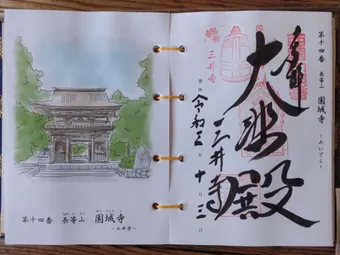 第十四番 長等山 園城寺 ~みいでら~
大悲殿
三井寺
三井寺
令和三年十月
第十四番 長等山 園城寺
-三井寺-